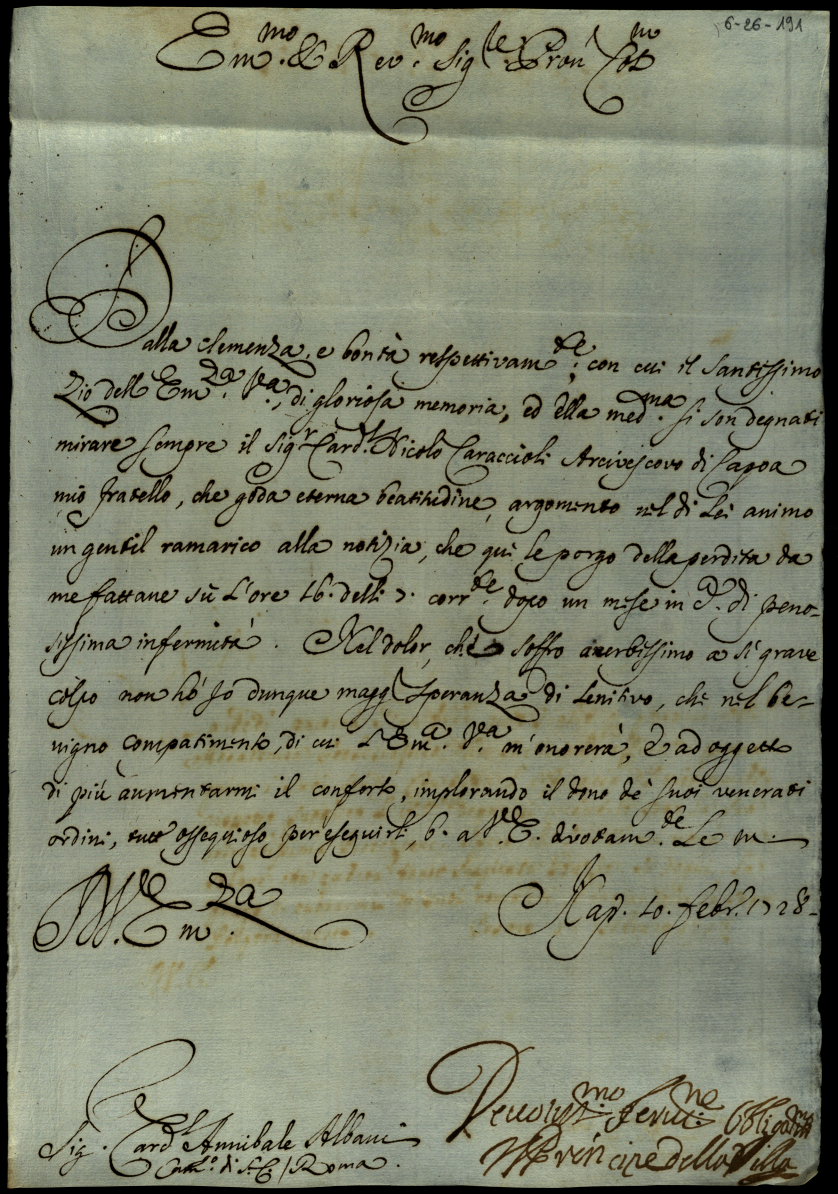 6-26-191
Em.mo & Rev.mo Sig.re Pron Col.mo
Dalla clemenza, e bontà respettivam.te, con cui il Santissimo
Zio dell'Em.za V.a, di gloriosa memoria, ed Ella med.ma si son degnati
mirare sempre il Sig.r Card.l Nicolò Caraccioli Arcivescovo di Capoa
mio fratello, che goda eterna beatitudine, argomento nel di Lei animo
un gentil ramarico alla notizia, che quì le porgo della perdita da
me fattane sù l'ore 16. delli 7. corr.te dopo un mese in C. di peno-
sissima infermità. Nel dolor, che soffro acerbissimo a sì grave
colpo non hò Io dunque magg.r speranza di lenitivo, che nel be-
nigno compatimento, di cui l'Em.a V.a m'onorerà, & ad oggetto
di più aumentarmi il conforto, implorando il dono de' suoi venerati
ordini, tutto ossequioso per eseguirli, b. a V.E. divotam.te Le m.
V. Em.za
Nap. 10. febr. 1728.
Devotis.mo Serv.re Obligatis.mo
Sig. Card.l Annibale Albani
Il Principe della Villa
Cam.o di S.C. / Roma.